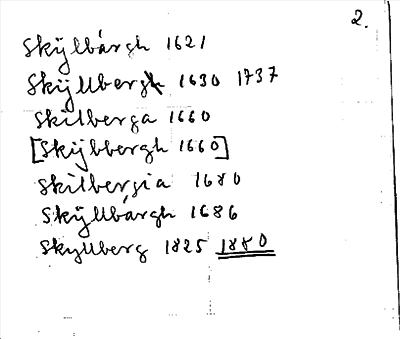 2.
Skÿlbárgh 1621
Skÿllbergh 1630 1737
Skilberga 1660
[Skÿbbergh 1660]
Skilbergia 1680
Skÿllbárgh 1686
Skyllberg 1825 1880